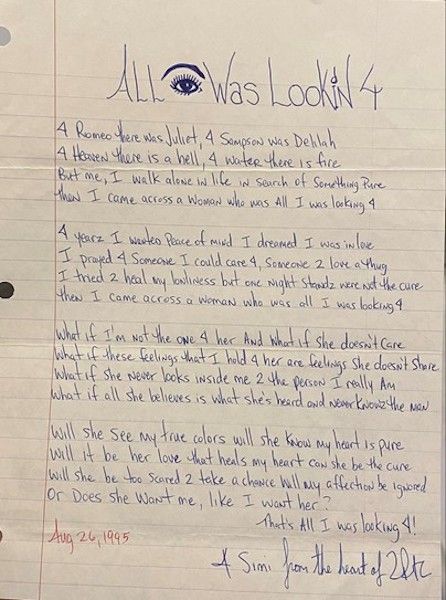 ALL 👁 Was Lookin 4
4 Romeo there was Juliet, 4 Sampson was Delilah
4 Heaven there is a hell, 4 water there is fire
But me, I walk alone in life in search of something Pure
then I came across a woman who was All I was looking 4
4 yearz I wanted Peace of mind I dreamed I was in love
I prayed 4 someone I could care 4, someone 2 love a thug
I tried 2 heal my lonliness but one night standz were not the cure
then I came across a woman who was all I was looking 4
What if I'm not the one 4 her And what if she doesn't care
What if these feelings that I hold 4 her are feelings she doesn't share
What if she never looks inside me 2 the person I really Am
What if all she believes is what she's heard and never knowz the man
Will she see my true colors will she know my heart is pure
Will it be her love that heals my heart can she be the cure
Will she be too scared 2 take a chance will my affection be ignored
Or Does she want me, like I want her?
That's All I was looking 4!
Aug 26, 1995
4 Simi from the heart of